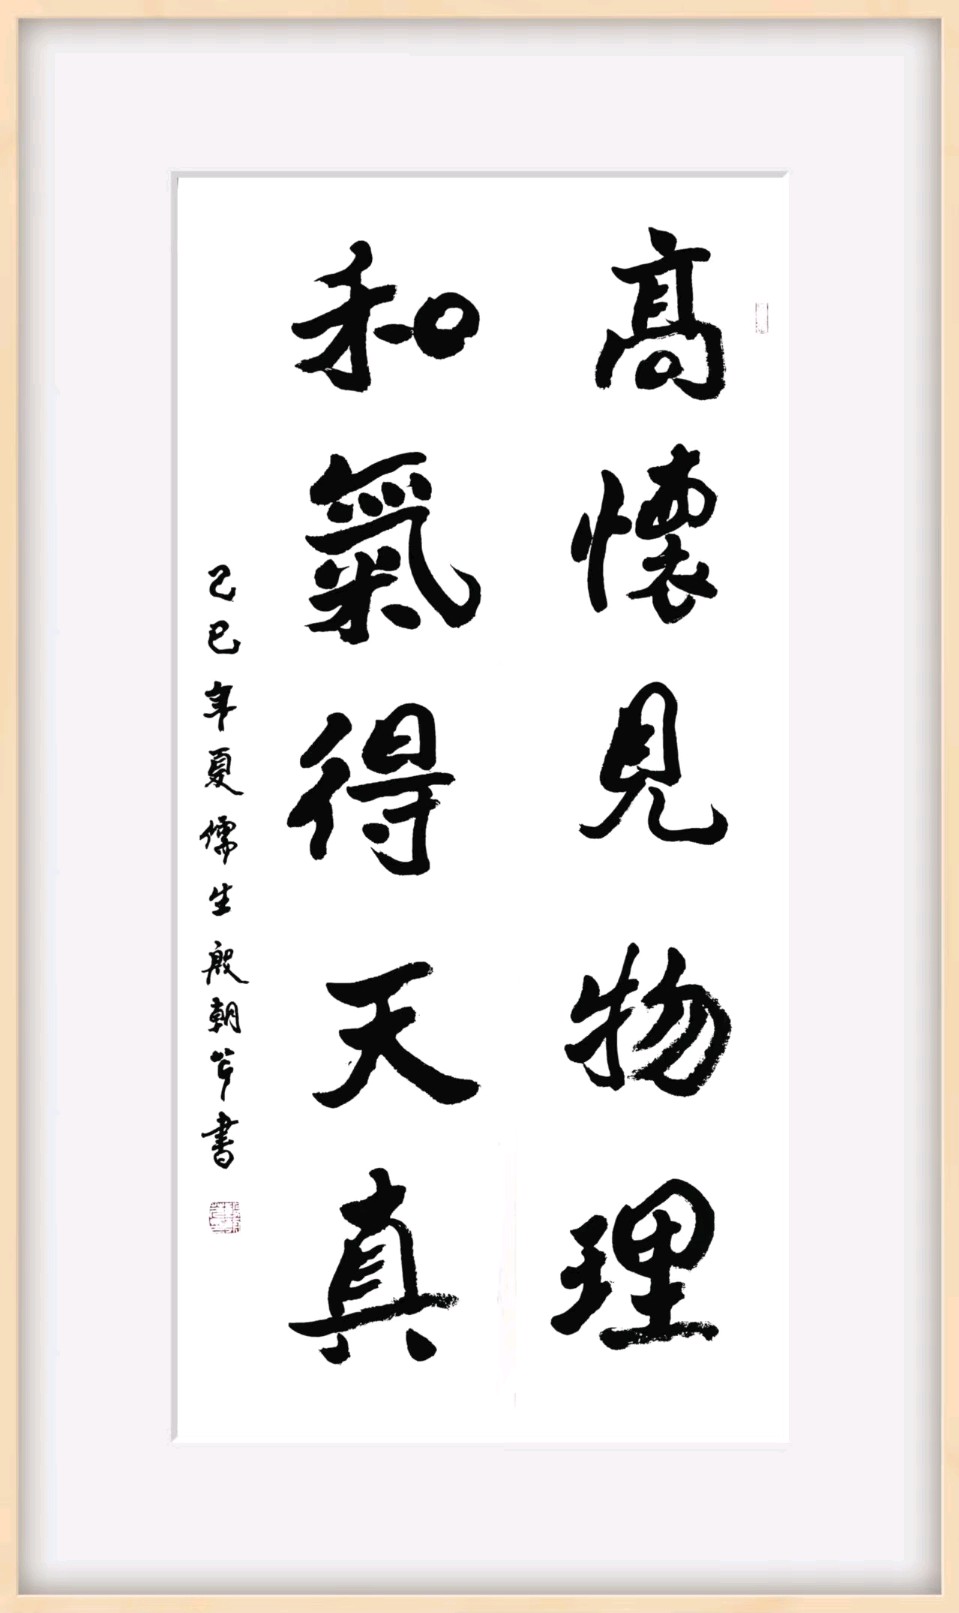 高懷見物理
和氣得天真
己巳年夏儒生殷朝書